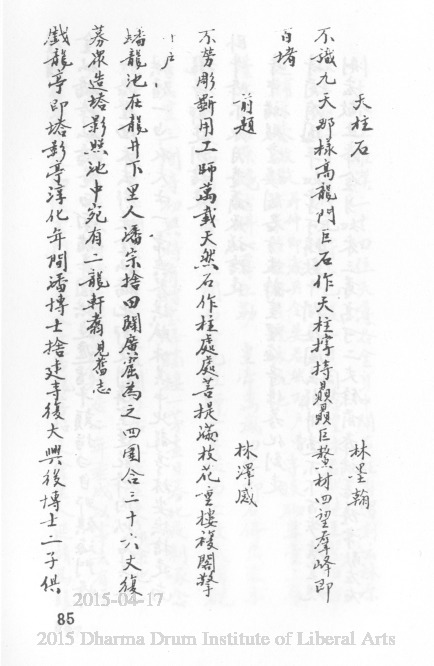 天柱石
林墨翰
不識九天那樣高龍門巨石作天柱撐持贔贔巨鰲材四望羣峰即
百堵
前題
林澤威
不勞彫斲用工師萬載天然石作柱處處菩提滿枝花重樓複閣擎
千戶
蟠龍池在龍井下里人潘宗捨田闢廣窟為之四圍合三十六丈復
募眾造塔影照池中宛有二龍軒翥見舊志
戲龍亭即塔影亭淳化年間潘博士捨建寺復大興後博士二子俱
85
2015-04-17
2015 Dharma Drum Institute of Liberal Arts